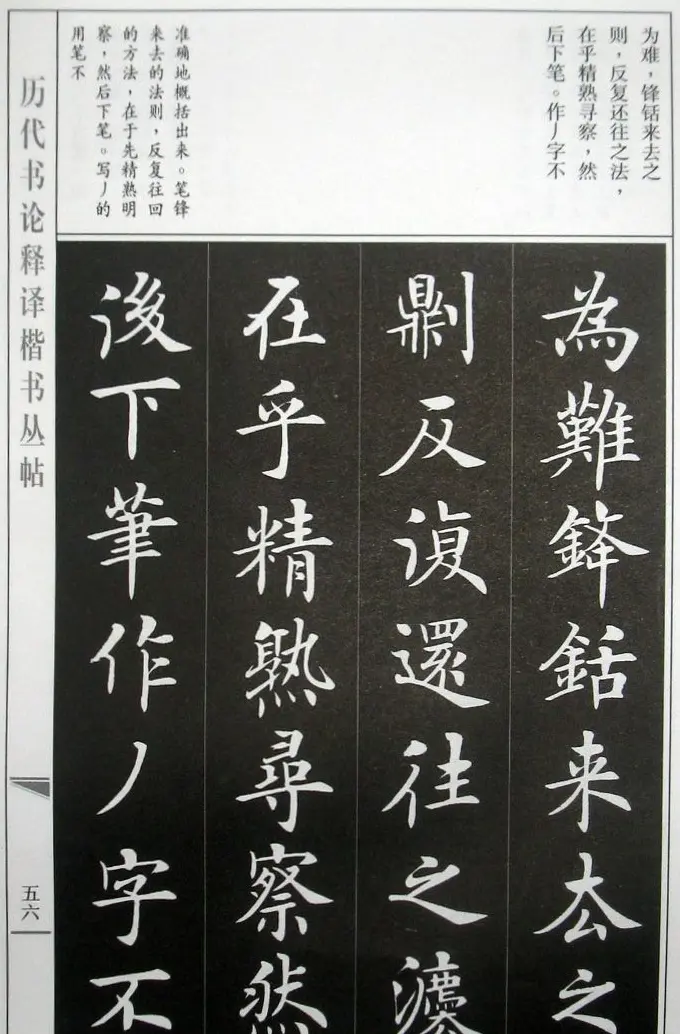 为难，锋铦来去之
则，反复还往之法，
在乎精熟寻察，然
后下笔。作丿字不
准确地概括出来。笔锋
来去的法则，反复往回
的方法，在于先精熟明
察，然后下笔。写丿的
用笔不
為難鋒銛来厺之
𠟭反復還往之灋
在乎精熟尋察然
後下筆作丿字不
历代书论释译楷书丛帖
五六